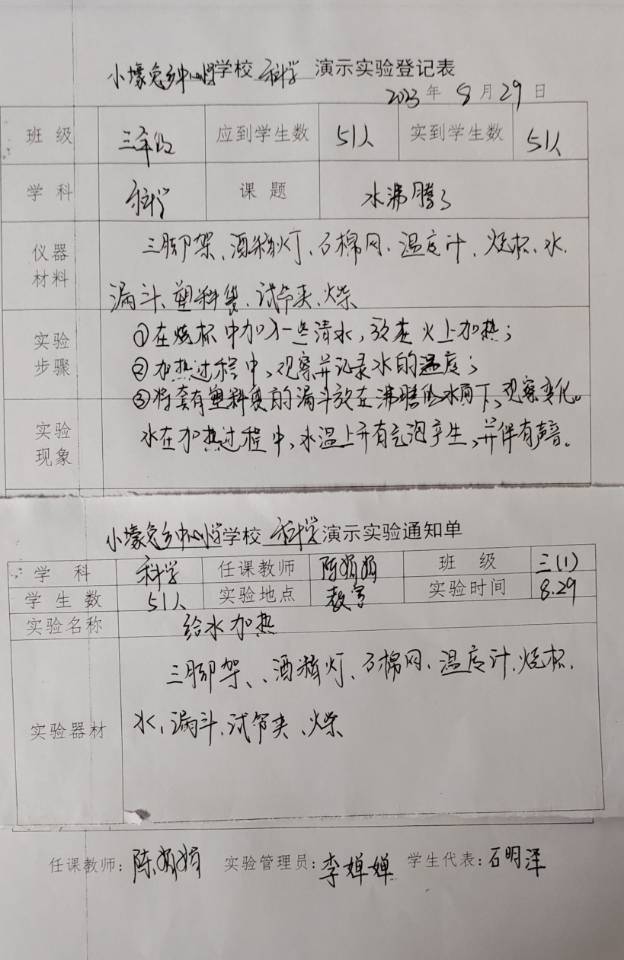 小壕兔乡中心小学学校 科学 演示实验登记表
2023 年 8 月 29 日
班 级 三年级 应到学生数 51人 实到学生数 51人
学 科 科学 课 题 水沸腾了
仪器材料 三脚架、酒精灯、石棉网、温度计、烧杯、水、
漏斗、塑料袋、试管夹、火柴
实验步骤 ①在烧杯中加入一些清水，放在火上加热；
②加热过程中，观察并记录水的温度；
③将套有塑料袋的漏斗放在沸腾的水面下，观察变化。
实验现象 水在加热过程中，水温上升有气泡产生，并伴有声音。
小壕兔乡中心小学学校 科学演示实验通知单
学 科 科学 任课教师 陈娟娟 班 级 三(1)
学 生 数 51人 实验地点 教室 实验时间 8.29
实验名称 给水加热
三脚架、、酒精灯、石棉网、温度计、烧杯、
实验器材 水、漏斗、试管夹、火柴
任课教师：陈娟娟 实验管理员：李婵婵 学生代表：石明泽